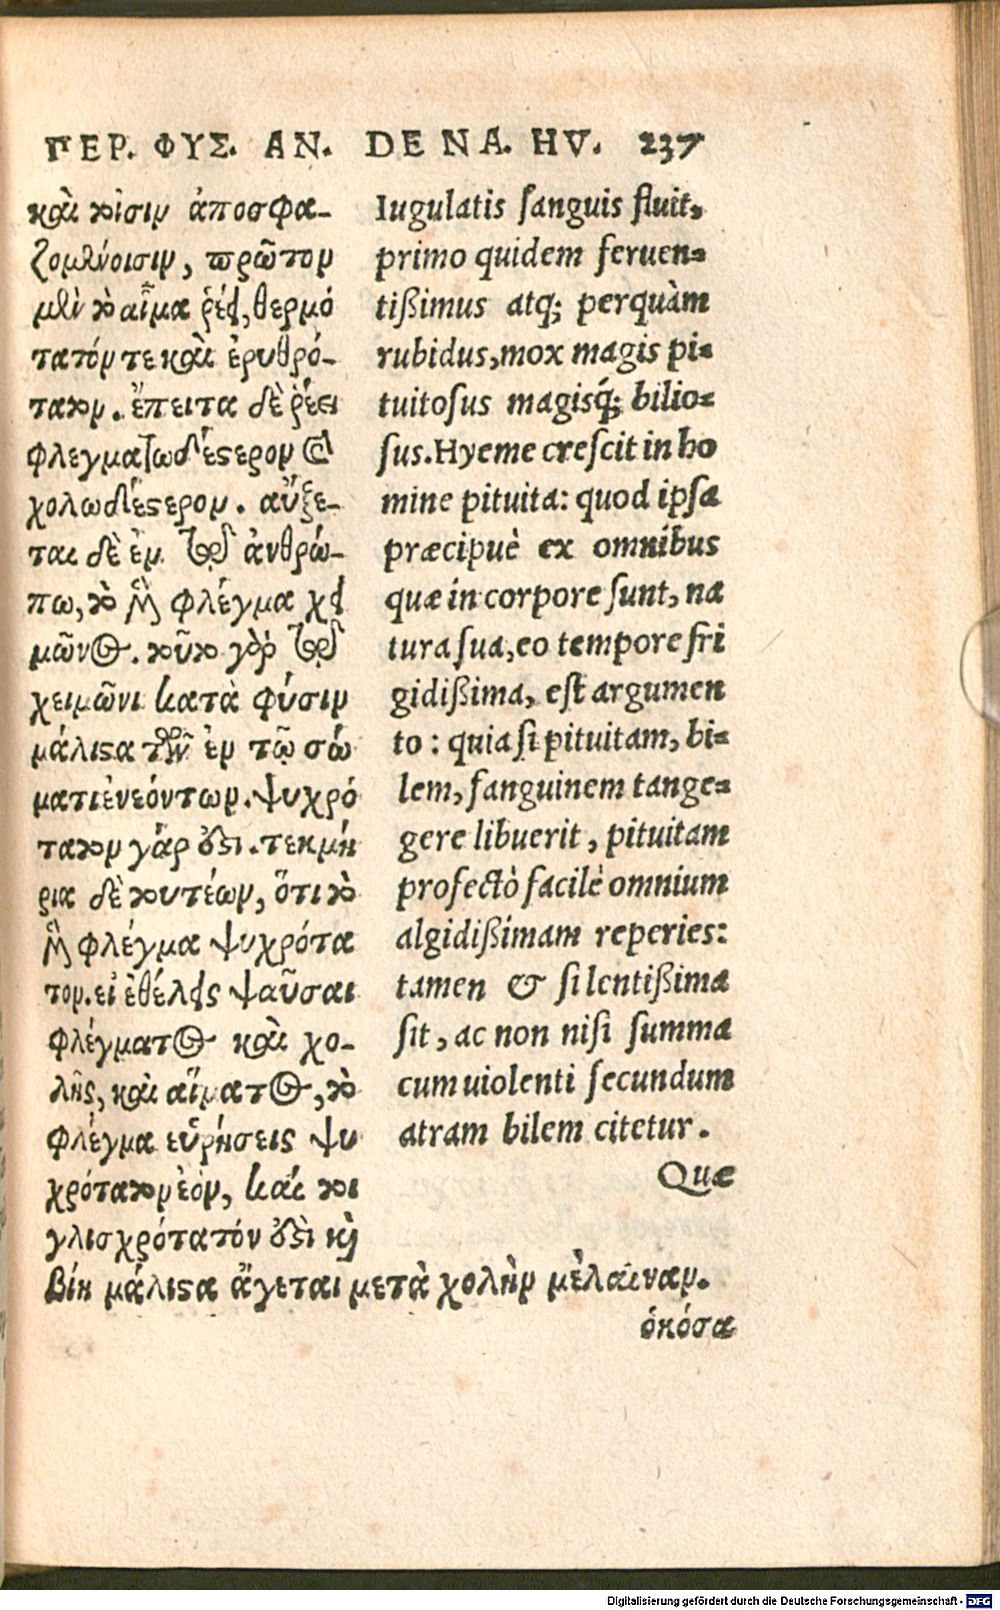 ΠΕΡ. ΦΥΣ. ΑΝ. DE NA. HV. 237
καὶ τοῖσιν ἀποσφα-
ζομένοισιν, πρῶτον
μὲν τὸ αἷμα ῥέει, θερμό
τατόν τε καὶ ἐρυθρό-
τατον. ἔπειτα δὲ ῥέει
φλεγματωδέστερον καὶ
χολωδέστερον. αὔξε-
ται δὲ ἐν τῷ ἀνθρώ-
πῳ, τὸ μὲν φλέγμα χει
μῶνος. τοῦτο γὰρ τῷ
χειμῶνι κατὰ φύσιν
μάλιστα τῶν ἐν τῷ σώ
ματι ἐνεόντων. ψυχρό
τατον γάρ ἐστι. τεκμή
ρια δὲ τουτέων, ὅτι τὸ
μὲν φλέγμα ψυχρότα
τον. εἰ ἐθέλεις ψαῦσαι
φλέγματος καὶ χο-
λῆς, καὶ αἵματος, τὸ
φλέγμα εὑρήσεις ψυ
χρότατον ἐόν, καί τοι
γλισχρότατόν ἐστὶ καὶ
βίῃ μάλιστα ἄγεται μετὰ χολὴν μέλαιναν.
ὁκόσα
Iugulatis sanguis fluit,
primo quidem feruen-
tißimus atq; perquàm
rubidus, mox magis pi-
tuitosus magisq́; bilio-
sus. Hyeme crescit in ho
mine pituita: quod ipsa
præcipuè ex omnibus
quæ in corpore sunt, na
tura sua, eo tempore fri
gidißima, est argumen
to: quia si pituitam, bi-
lem, sanguinem tange-
gere libuerit, pituitam
profectò facilè omnium
algidißimam reperies:
tamen & si lentißima
sit, ac non nisi summa
cum uiolenti secundum
atram bilem citetur.
Quæ
Digitalisierung gefördert durch die Deutsche Forschungsgemeinschaft - DFG